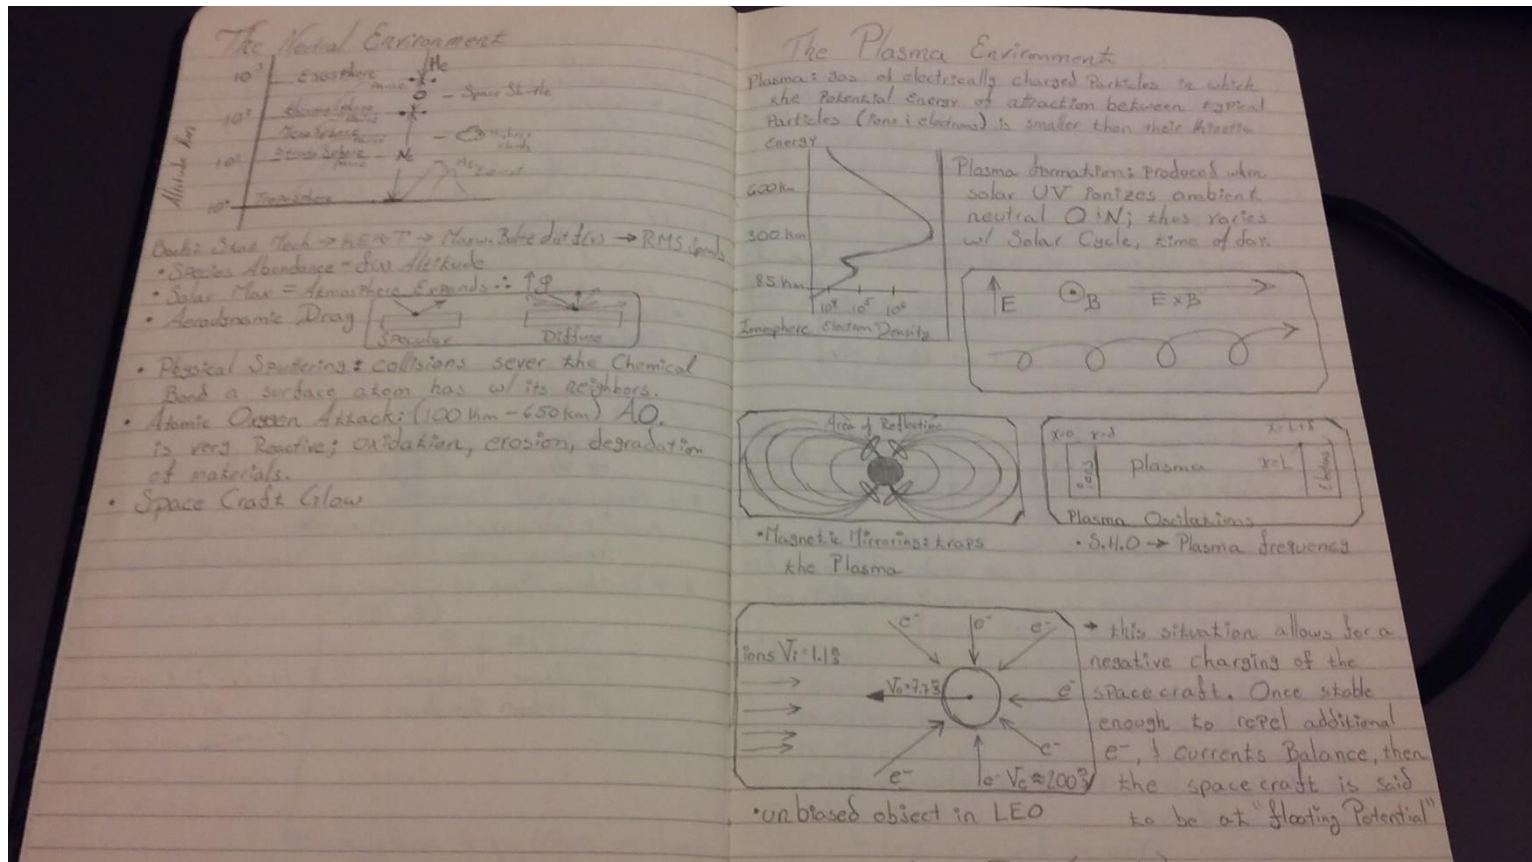 The Neutral Environment
10³
Exosphere
He
O - Space Shuttle
10²
Thermosphere
pause
Mesosphere
pause
10¹
Stratosphere
pause
N₂
Mt. Everest
Altitude (km)
10⁰
Troposphere
Basic: Stat Mech → KE~T → Maxw. Boltz dist f(v) → RMS speeds
• Species Abundance = f(x) Altitude
• Solar Max = Atmosphere Expands ∴ ↑ρ
• Aerodnamic Drag
Specular
Diffuse
• Physical Sputtering: collisions sever the Chemical
Bond a surface atom has w/ its neighbors.
• Atomic Oxygen Attack: (100 km - 650 km) AO.
is very Reactive; oxidation, erosion, degradation
of materials.
• Space Craft Glow
The Plasma Environment
Plasma: gas of electrically charged Particles in which
the Potential Energy of attraction between typical
Particles (ions & electrons) is smaller than their Kinetic
Energy
600 km
300 km
85 km
10⁴ 10⁵ 10⁶
Ionosphere Electron Density
Plasma formation: Produced when
solar UV ionizes ambient
neutral O & N; thus varies
w/ Solar Cycle, time of day.
E
B
E x B
Area of Reflection
• Magnetic Mirroring: traps
the Plasma
x=0 x=δ
x=L+δ
ions
Plasma
x=L
Plasma Oscilations
• S.H.O → Plasma frequency
e⁻
e⁻
e⁻
ions Vi=1.1
V₀=7.73
e⁻
e⁻
e⁻
e⁻ Ve≈200
• unbiased object in LEO
→ this situation allows for a
negative charging of the
spacecraft. Once stable
enough to repel additional
e⁻, & currents Balance, then
the spacecraft is said
to be at "floating Potential"